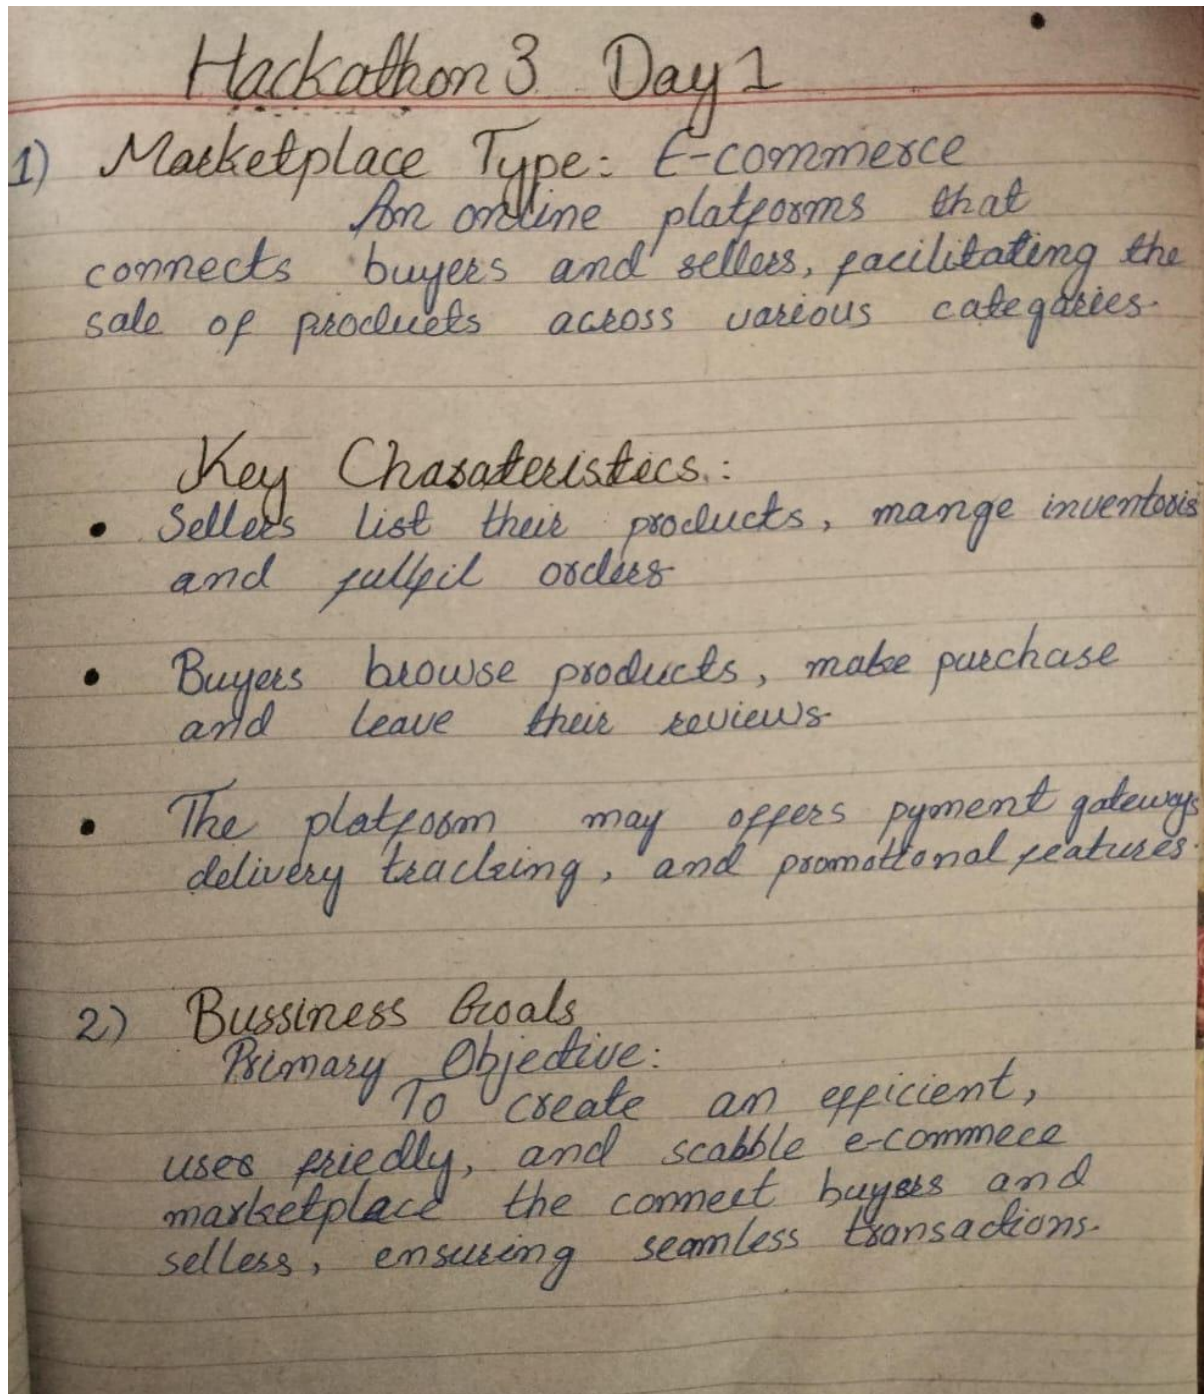 Hackathon 3 Day 1
1) Marketplace Type: E-commerce
An online platforms that
connects buyers and sellers, facilitating the
sale of products across various categaries.
Key Charateristics:
• Sellers list their products, mange inventoris
and fulfil orders
• Buyers browse products, make purchase
and leave their reviews.
• The platform may offers pyment gateways
delivery tracking, and promotional features.
2) Bussiness Goals
Primary Objective:
To create an efficient,
user friedly, and scabble e-commece
marketplace the connect buyers and
sellers, ensuring seamless transactions.